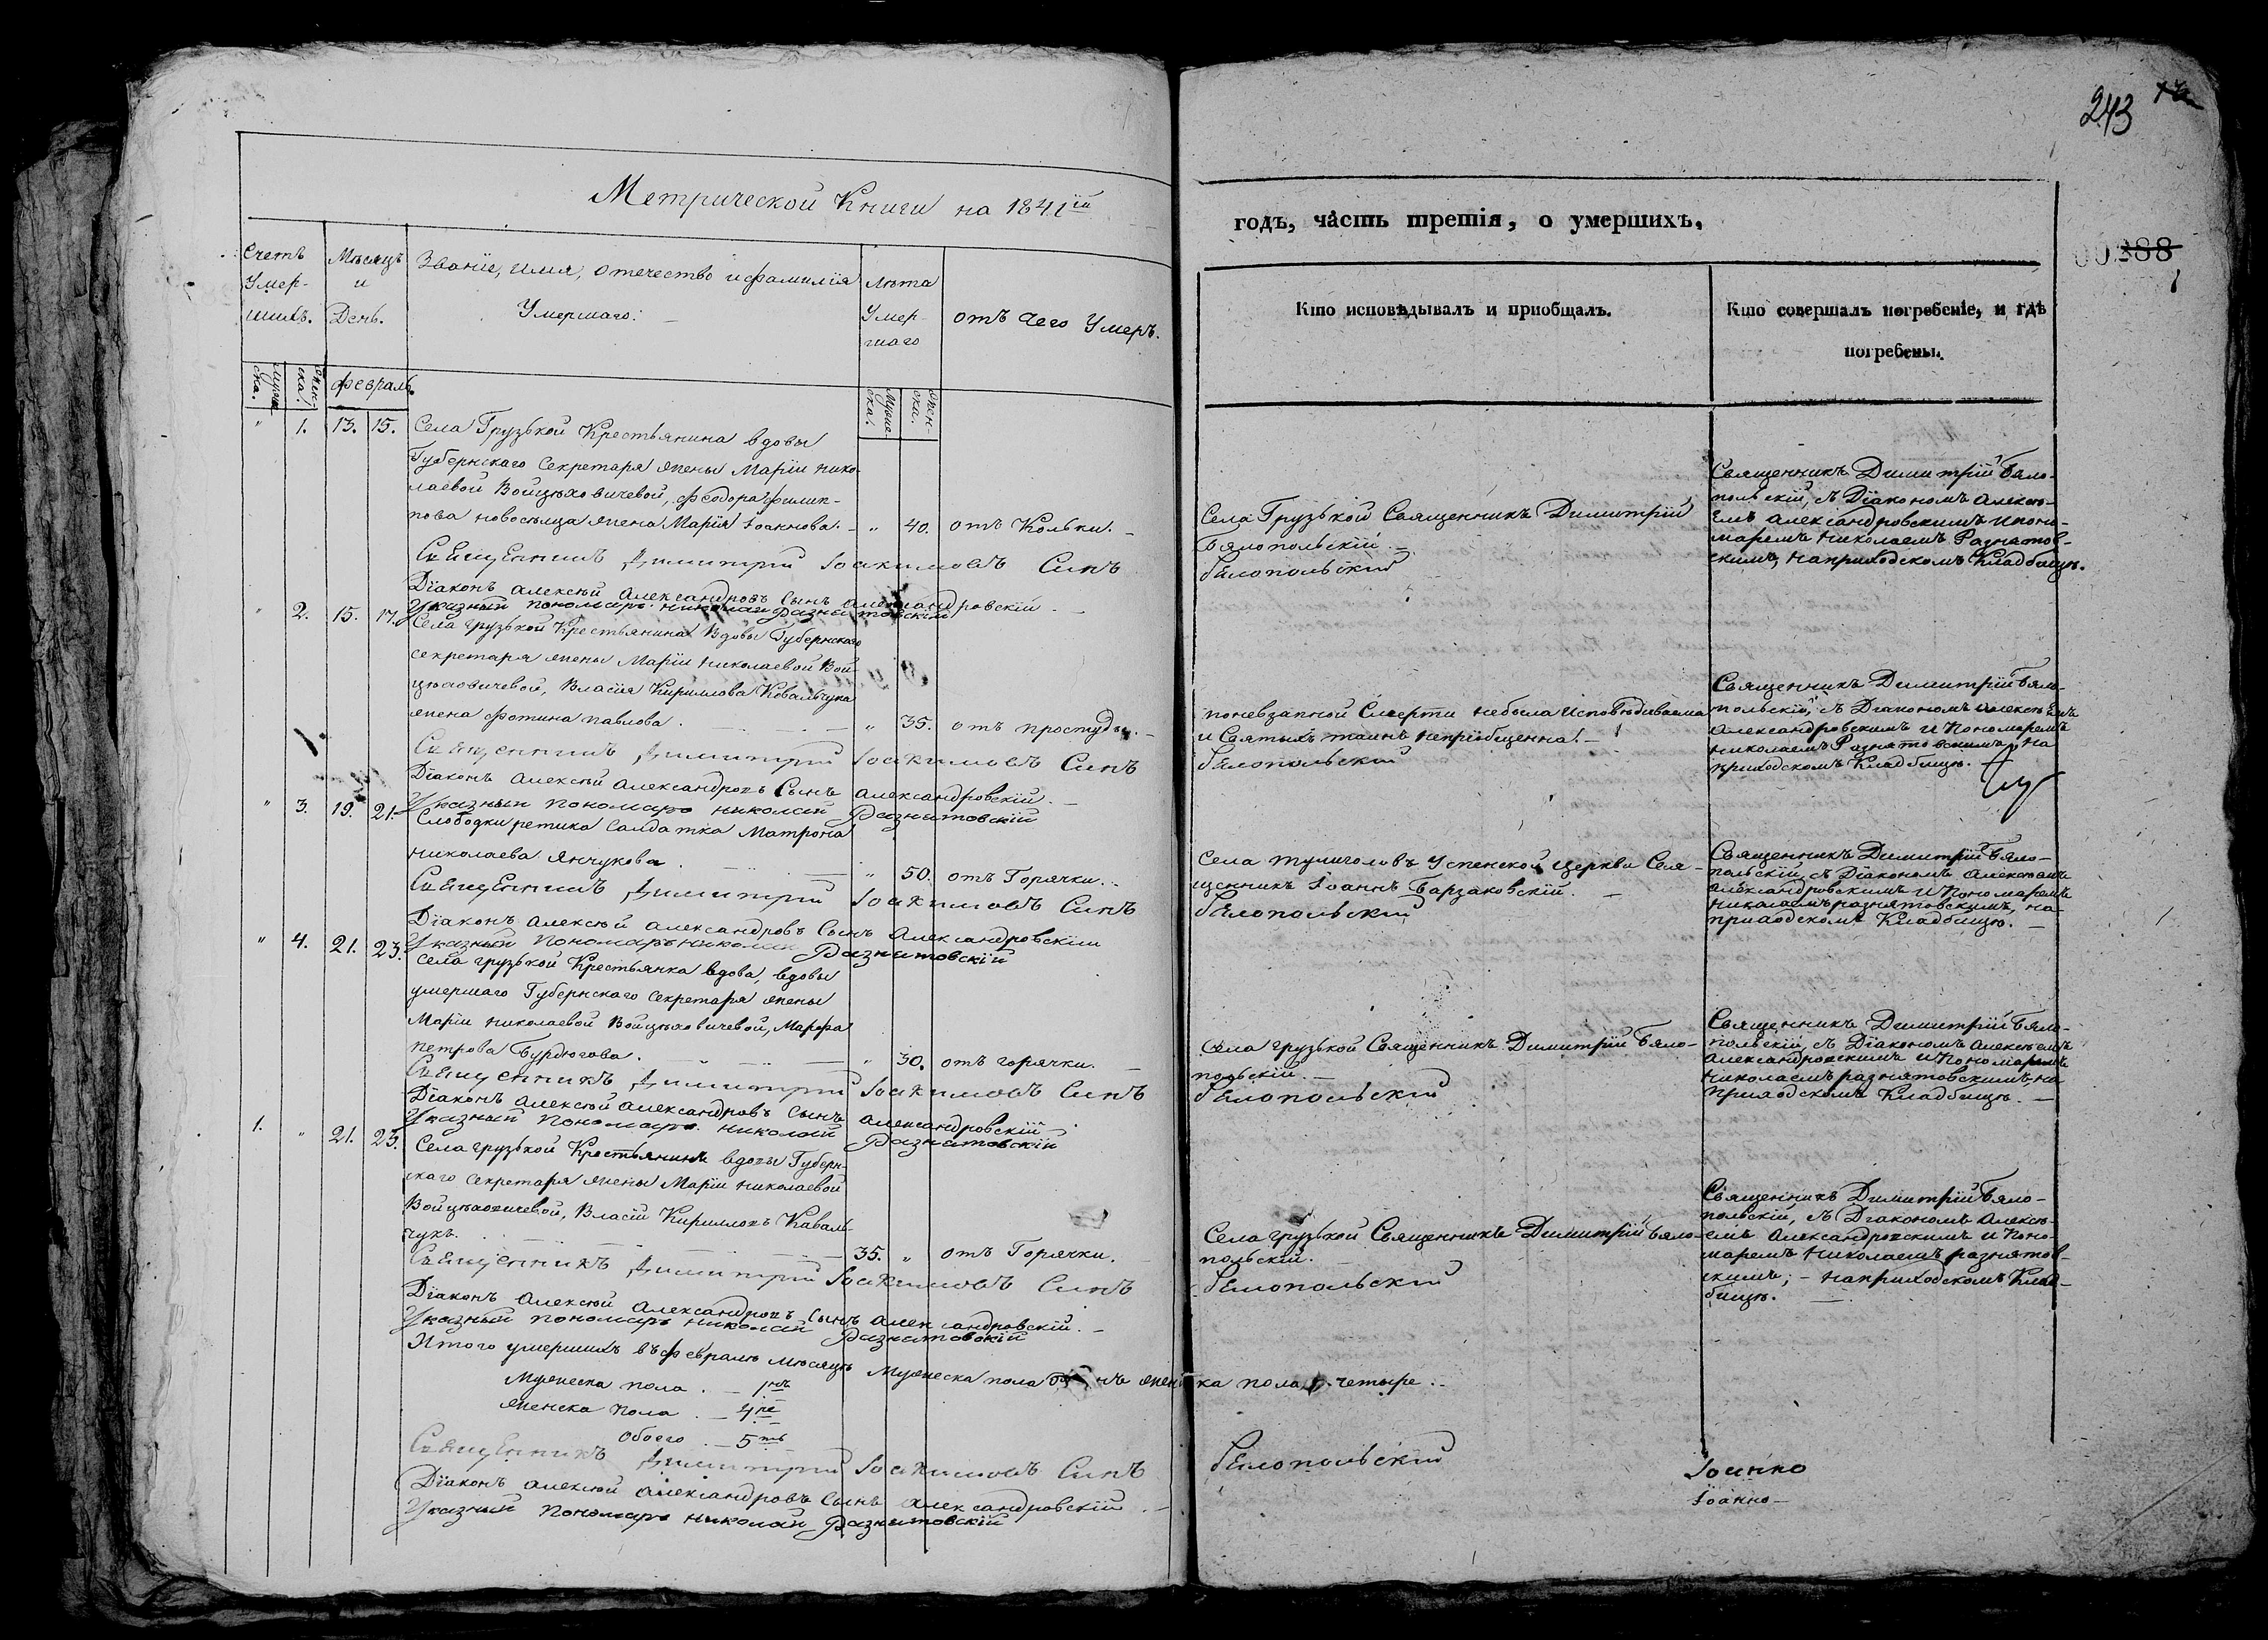 243
Метрической Книги на 1841й
годъ, часть третія, о умершихъ,
00388
Счетъ Умер- шихъ.
Мѣсяцъ и День.
Званіе, имя, отечество и фамилія Умершаго:
Лѣта Умер- шаго
отъ чего Умеръ.
Кто исповѣдывалъ и пріобщалъ.
Кто совершалъ погребеніе, и гдѣ погребены.
Мужеска. Женска. Февраль. Мужеска. Женска.
" 1. 13. 15. Села Грузькой Крестьянина вдовы
Губернскаго Секретаря жены Маріи Нико-
лаевой Войцѣховичевой, Феодора Филип-
пова Новосельца жена Марія Іоаннова. - " 40. отъ Кольки. -
Села Грузькой Священникъ Димитрій
Бялопольскій. -
Священникъ Димитрій Бяло-
польскій, съ Діакономъ Алексѣ-
емъ Александровскимъ и Поно-
маремъ Николаемъ Разнатов-
скимъ, на приходскомъ Кладбищѣ.
Священникъ Димитрій Іоакимовъ Синъ Белопольский
Діаконъ Алексѣй Александровъ Сынъ Александровскій. -
Указный Пономарь Николай Разнатовскій
" 2. 15. 17. Села Грузькой Крестьянина Вдовы Губернскаго
секретаря жены Маріи Николаевой Вой-
цѣховичевой, Власія Кириллова Ковальчука
жена Фотина Павлова. - " 35. отъ простуды. -
По невзапной Смерти небыла исповѣдиваема
и Святыхъ таинъ непріобщенна. -
Священникъ Димитрій Бяло-
польскій, съ Діакономъ Алексѣемъ
Александровскимъ и Пономаремъ
Николаемъ Разнятовскимъ, на
приходскомъ Кладбищѣ. -
Священникъ Димитрий Іоакимовъ Синъ Белопольский
Діаконъ Алексѣй Александровъ Сынъ Александровскій. -
Указный Пономарь Николай Разнатовскій
" 3. 19. 21. Слободки ретика Салдатка Матрона
Николаева Янчукова. - " 50. отъ Горячки. -
Села Тулиголовъ Успенской Церкви Свя-
щенникъ Іоаннъ Барзаковскій. -
Священникъ Димитрій Бяло-
польскій, съ Діакономъ Алексѣемъ
Александровскимъ и Пономаремъ
Николаемъ разнятовскимъ, на-
приходскомъ Кладбищѣ. -
Священникъ Димитрий Іоакимовъ Синъ Белопольский
Діаконъ Алексѣй Александровъ Сынъ Александровскій
Указный Пономарь Николай Разнатовскій
" 4. 21. 23. Села грузькой Крестьянка вдова, вдовы
умершаго Губернскаго секретаря жены
Маріи Николаевой Войцѣховичевой, Марфа
Петрова Бурдюгова. - " 30. отъ горячки. -
Села грузькой Священникъ Димитрій Бяло-
польскій. -
Священникъ Димитрій Бяло-
польскій, съ Діакономъ Алексѣемъ
Александровскимъ и Пономаремъ
Николаемъ разнятовскимъ, на
приходскомъ Кладбищѣ. -
Священникъ Димитрий Іоакимовъ Синъ Белопольский
Діаконъ Алексѣй Александровъ Сынъ Александровскій
Указный Пономарь Николай Разнатовскій
1. " 21. 23. Села грузькой Крестьянинъ вдовы Губерн-
скаго секретаря жены Маріи Николаевой
Войцѣховичевой, Власій Кирилловъ Каваль-
чукъ. - 35. " отъ Горячки. -
Села грузькой Священникъ Димитрій Бяло-
польскій. -
Священникъ Димитрій Бяло-
польскій, съ Діакономъ Алексѣ-
емъ Александровскимъ и Поно-
маремъ Николаемъ разнятов-
скимъ; - на приходскомъ Клад-
бищѣ. -
Священникъ Димитрий Іоакимовъ Синъ Белопольский
Діаконъ Алексѣй Александровъ Сынъ Александровскій. -
Указный Пономарь Николай Разнатовскій
Итого умершихъ въ Февралѣ мѣсяцѣ Мужеска пола женска пола четыре. -
Мужеска пола. - 1нъ
Женска Пола. - 4ре
Обоего. - 5ть
Священникъ Димитрий Іоакимовъ Синъ Белопольский
Діаконъ Алексѣй Александровъ Сынъ Александровскій. -
Указный Пономарь Николай Разнатовскій
Іоанно
Іоанно-